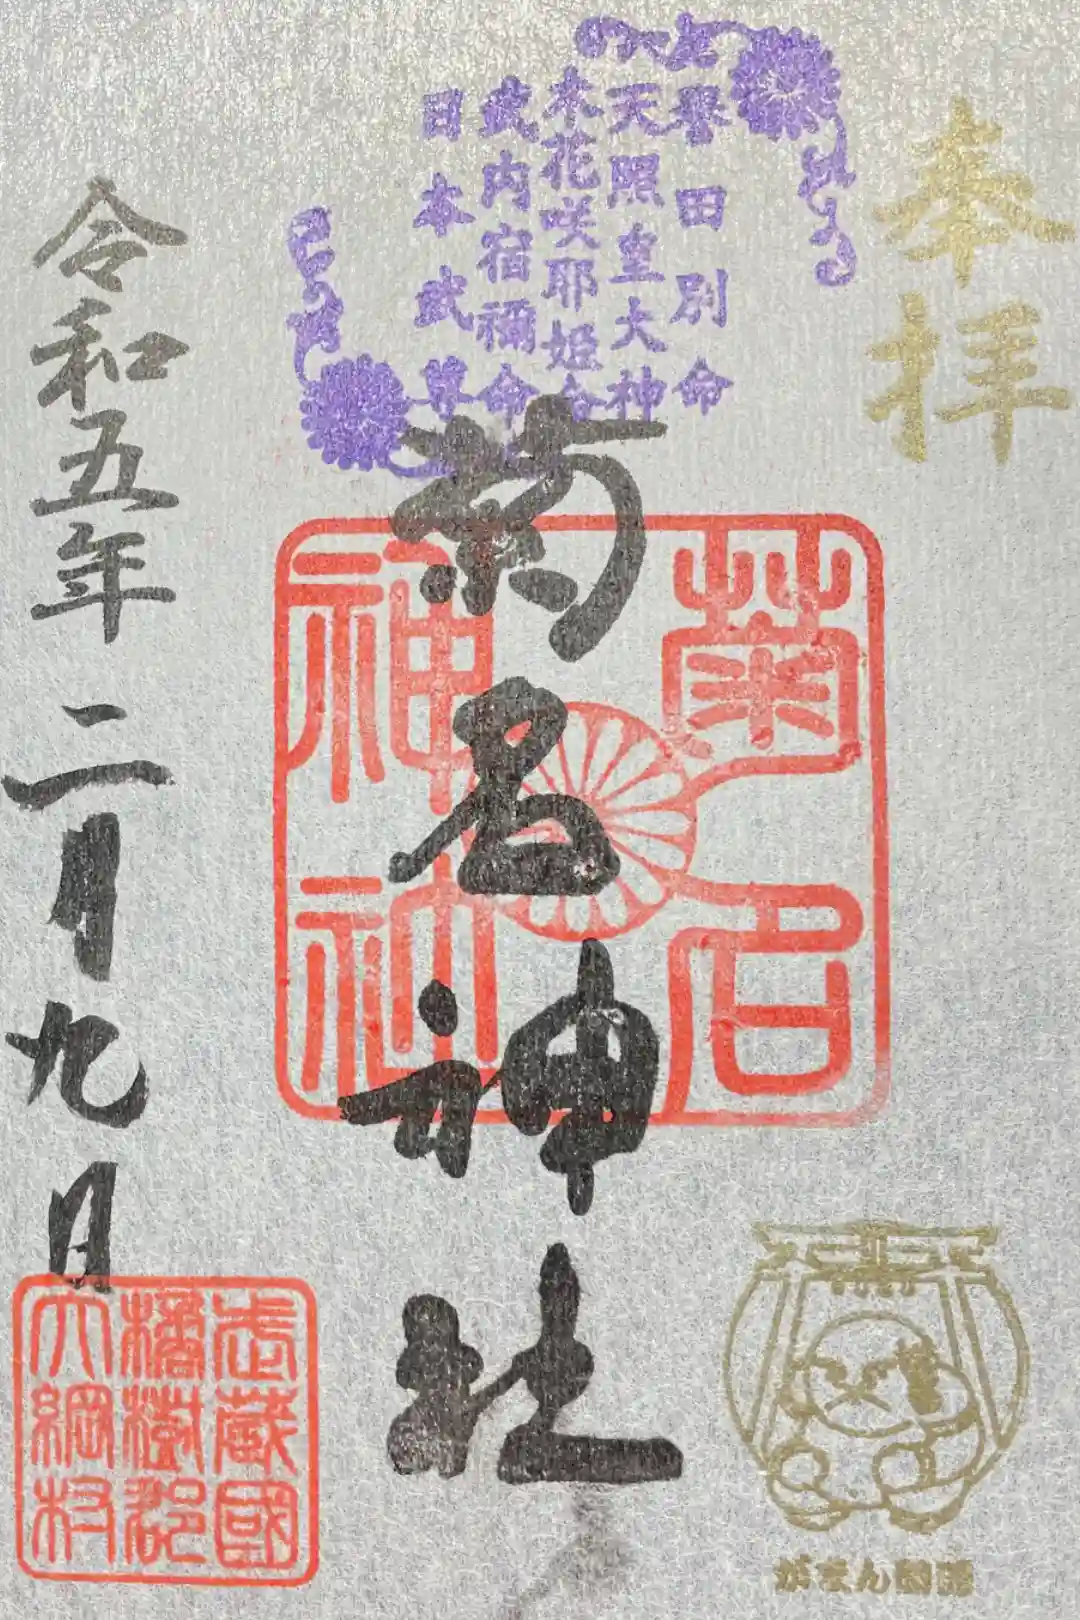 奉拝
誉田別命
天照皇大神
木花咲耶姫命
武内宿禰命
日本武尊
菊名神社
菊名神社
令和五年二月九日
武蔵國
橘樹郡
大綱村
がまん様